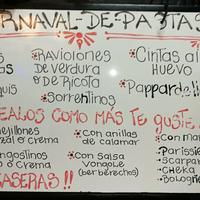 RNAVAL-DE-PASTAS
RAVIOLONES
DE VERDURA
o DE RICOTA
Sorrentinos
Cintas al
HUEVO
Pappardell
EALOS COMO MAS TE GUSTE
ejillones
al ó crema
ngostinos
ó crema
con anillas
de calamar
con Salsa
VONGOLE
(berberechos)
con mar
Parissie
Scarpar
CHEKA
Bologn
CASERAS!!